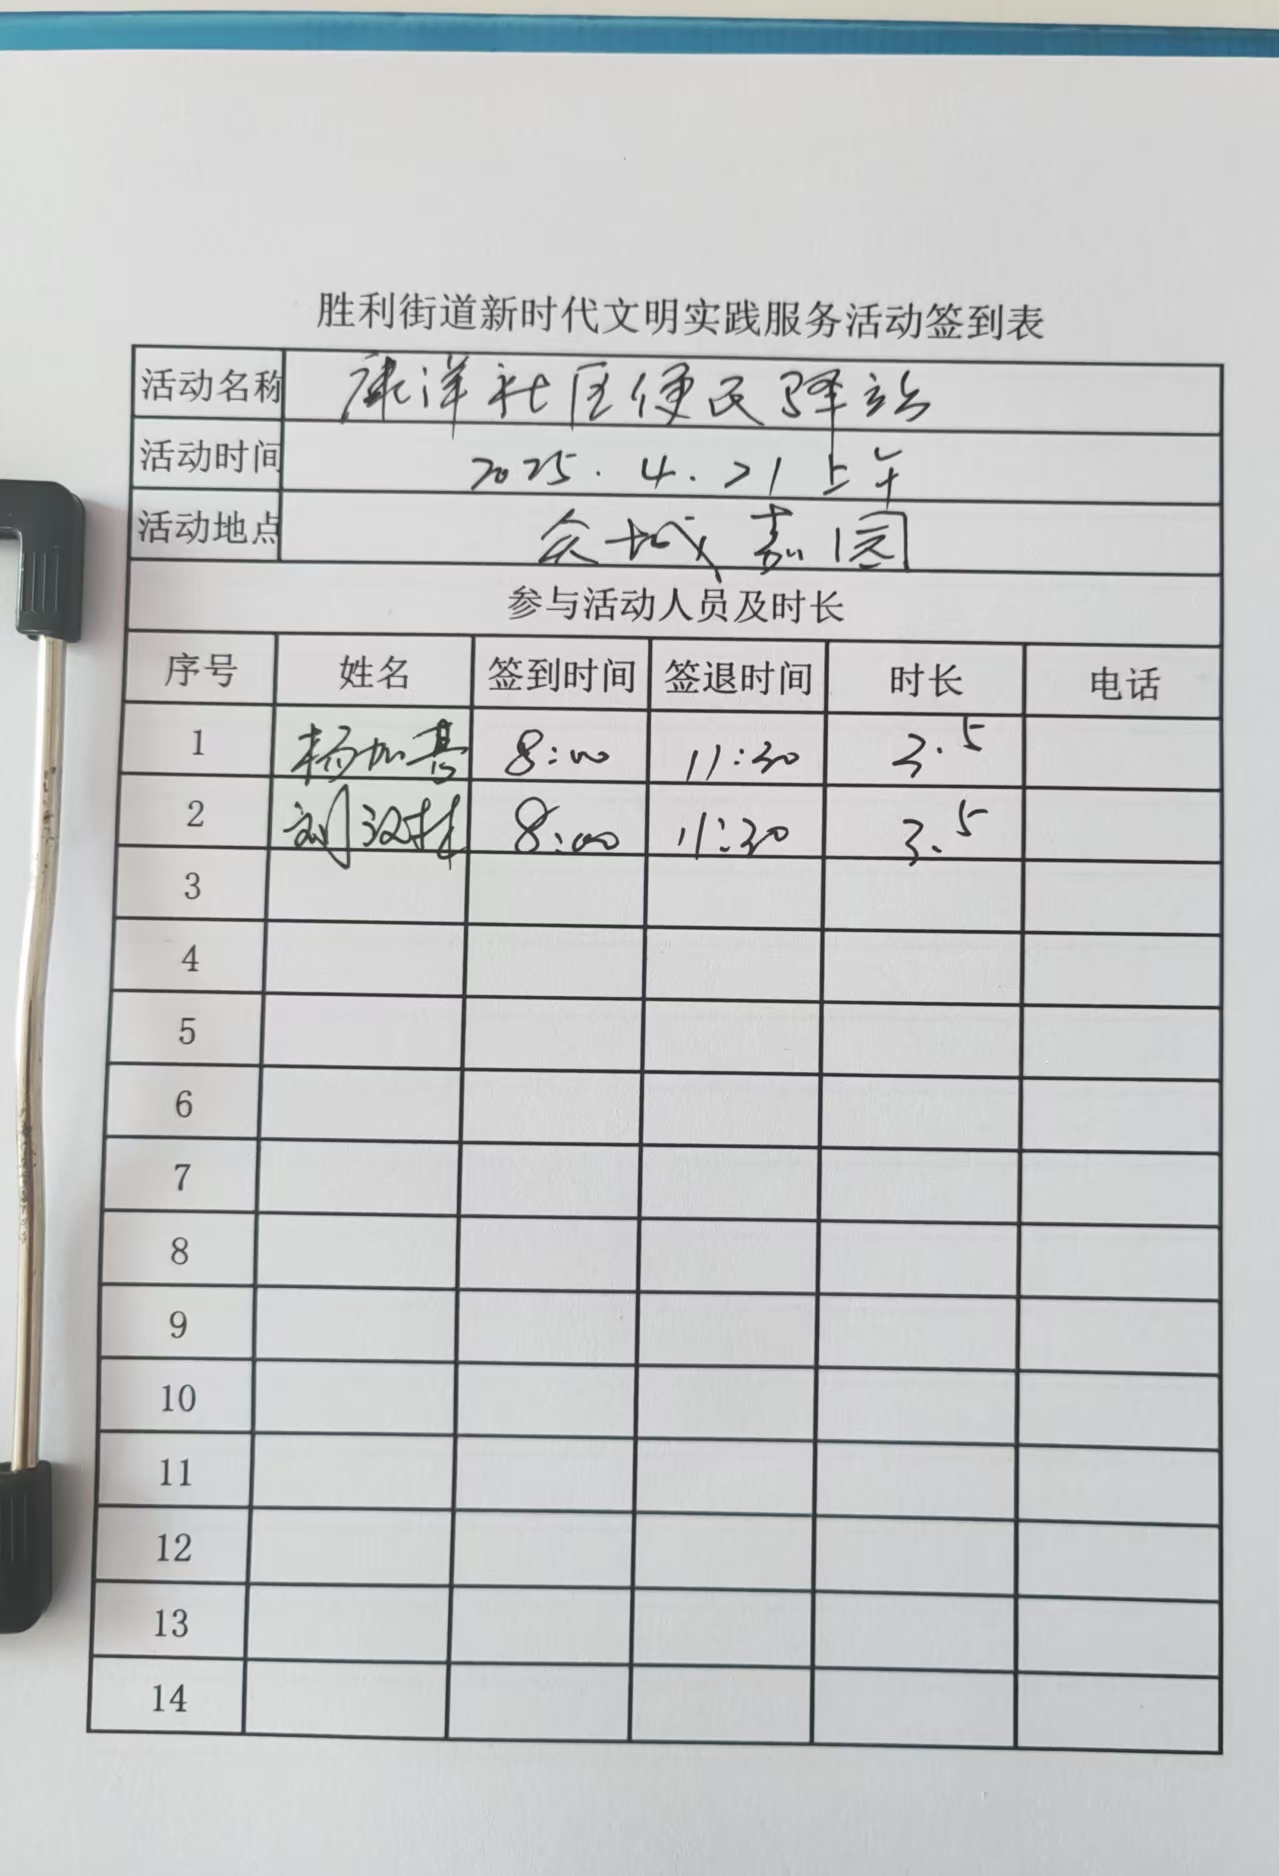 胜利街道新时代文明实践服务活动签到表
活动名称 康洋社区便民驿站
活动时间 2025.4.21 上午
活动地点 众城嘉园
参与活动人员及时长
序号 姓名 签到时间 签退时间 时长 电话
1 杨加 8:00 11:30 3.5
2 刘汉林 8:00 11:30 3.5
3
4
5
6
7
8
9
10
11
12
13
14